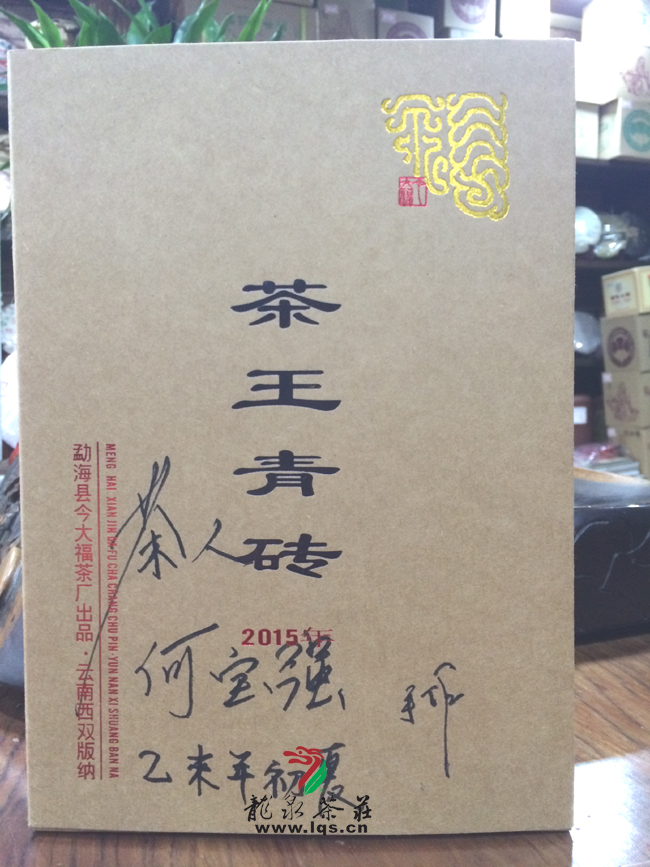 茶王青砖
2015年
勐海县今大福茶厂出品·云南西双版纳
MENG HAI XIAN JIN DA FU CHA CHANG CHU PIN·YUN NAN XI SHUANG BAN NA
茶人
何宝强
乙未年初夏
龍泉茶莊
www.lqs.cn